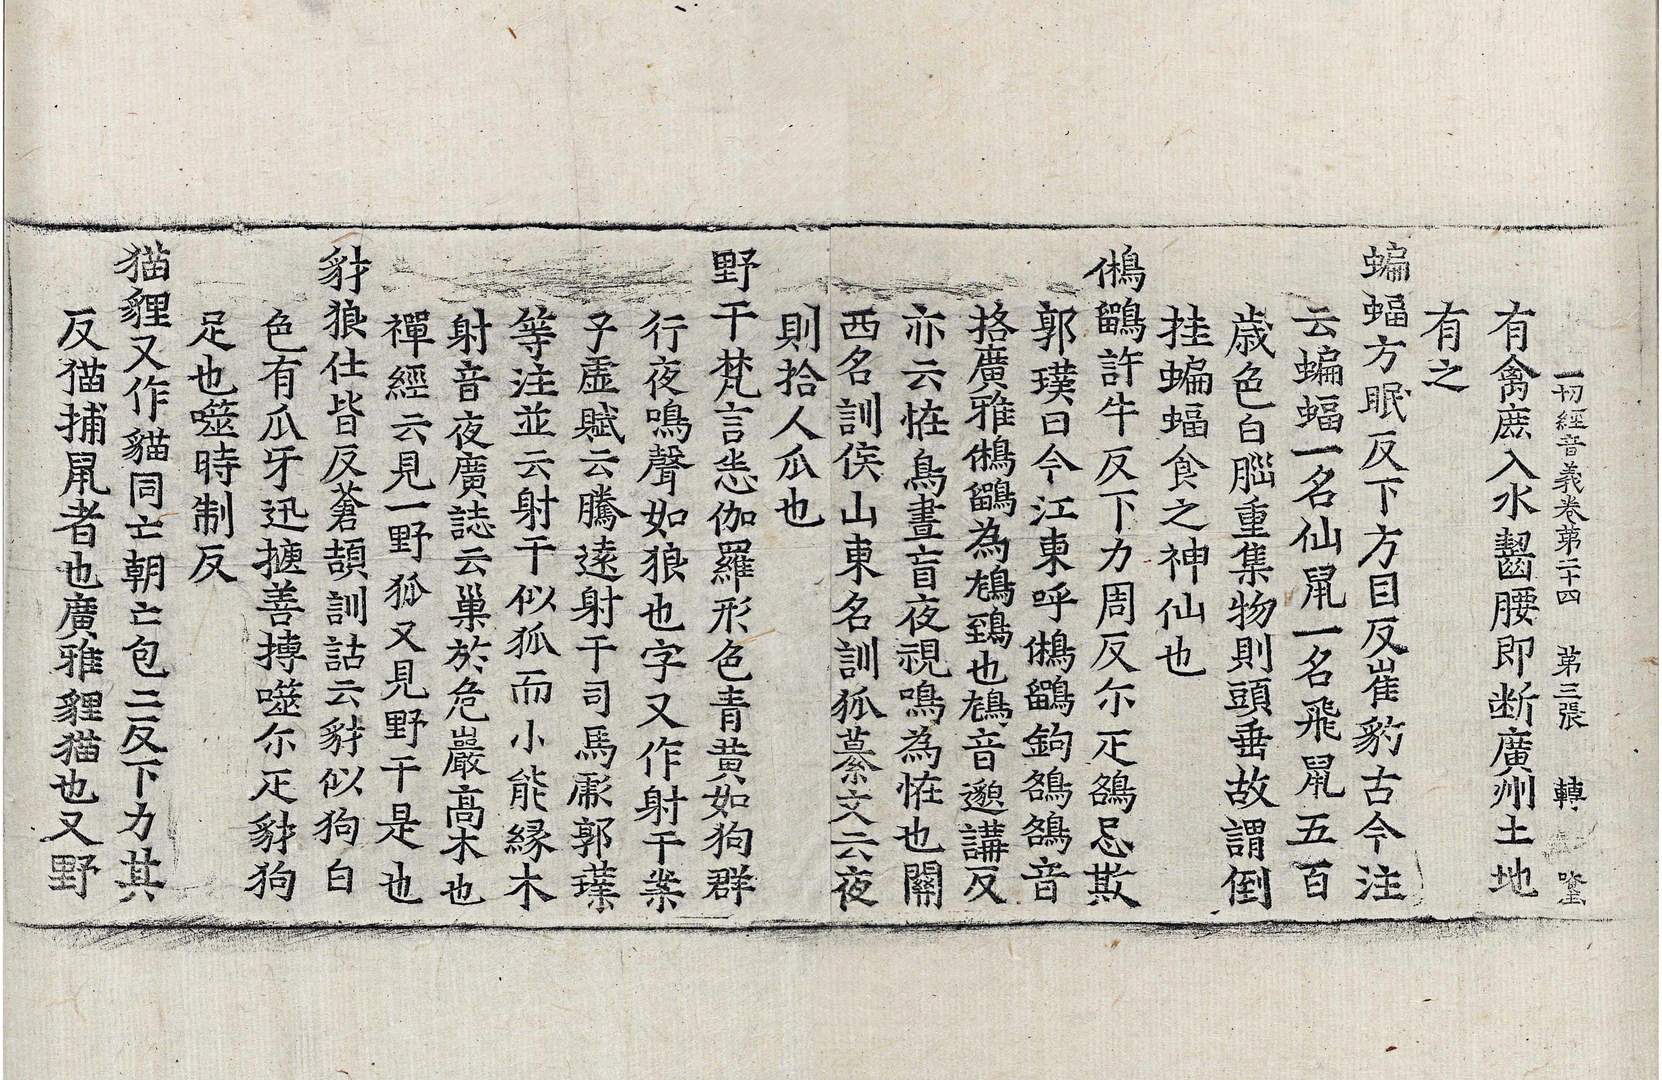 一切經音義卷第二十四 第三張 轉
有禽麃入水齧腰即断廣州土地
有之
蝙蝠方眠反下方目反崔豹古今注
云蝙蝠一名仙䑕一名飛䑕五百
歳色白腦重集物則頭垂故謂倒
挂蝙蝠食之神仙也
鵂鶹許牛反下力周反尒疋鵅忌欺
郭璞曰今江東呼鵂鶹鉤鵅鵅音
挌廣雅鵂鶹為鳩鵄也鳩音邈講反
亦云恠鳥晝盲夜視鳴為恠也關
西名訓侯山東名訓狐纂文云夜
則拾人瓜也
野干梵言悉伽羅形色青黄如狗群
行夜鳴聲如狼也字又作射干案
子虛賦云騰遠射干司馬彪郭璞
等注並云射干似狐而小能縁木
射音夜廣誌云巢於危巖高木也
禪經云見一野狐又見野干是也
豺狼仕皆反蒼頡訓詁云豺似狗白
色有瓜牙迅攎善搏噬尒疋豺狗
足也噬時制反
猫貍又作貓同亡朝亡包二反下力其
反猫捕䑕者也廣雅貍猫也又野